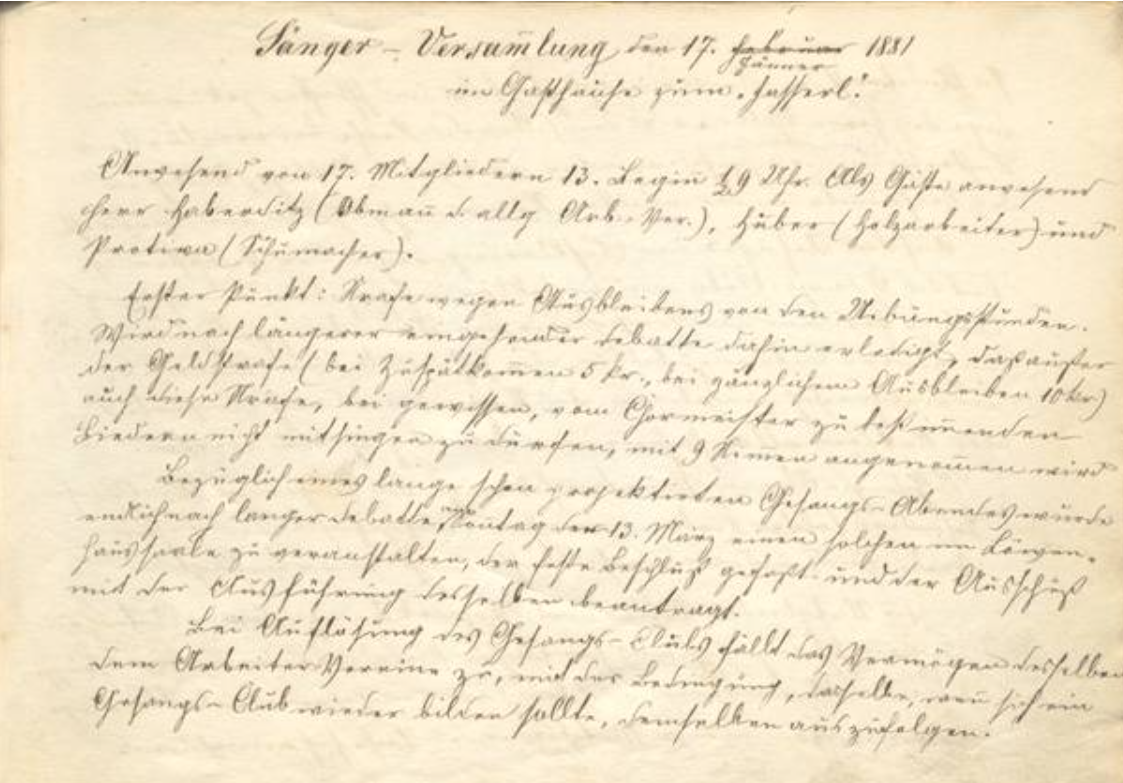 Sänger - Versam̄lung den 17. Februar 1881
Jänner
im Gasthause zum „Fasserl“.
Anwesend von 17. Mitgliedern 13. Begin̄ ½9 Uhr. Als Gäste anwesend
Herr Haberditz (Obman̄ d. allg Arb.-Ver.), Huber (Holzarbeiter) und
Protiwa (Schumacher).
Erster Punkt: Strafe wegen Ausbleibens von den Uebungsstunden.
Wird nach längerer eingehender Debatte dahin erledigt, daß außer
der Geldstrafe (bei Zuspätkom̄en 5 kr., bei gänzlichem Ausbleiben 10 kr)
auch diese Strafe, bei gewissen, vom Chormeister zu bestim̄enden
Liedern nicht mitsingen zu dürfen, mit 9 Stimen angenom̄en wird
Bezüglich eines lange schon projektirten Gesangs-Abendes wurde
endlich nach langer Debatte, am Sontag den 13. März einen solchen im Löwen-
haussaale zu veranstalten, der feste Beschluß gefaßt und der Ausschuß
mit der Ausführung desselben beantragt.
Bei Auflösung des Gesangs-Clubs fällt das Vermögen desselben
dem Arbeiter-Vereine zu, mit der Bedingung, dasselbe, wen̄ sich ein
Gesangs-Club wieder bilden sollte, demselben auszufolgen.